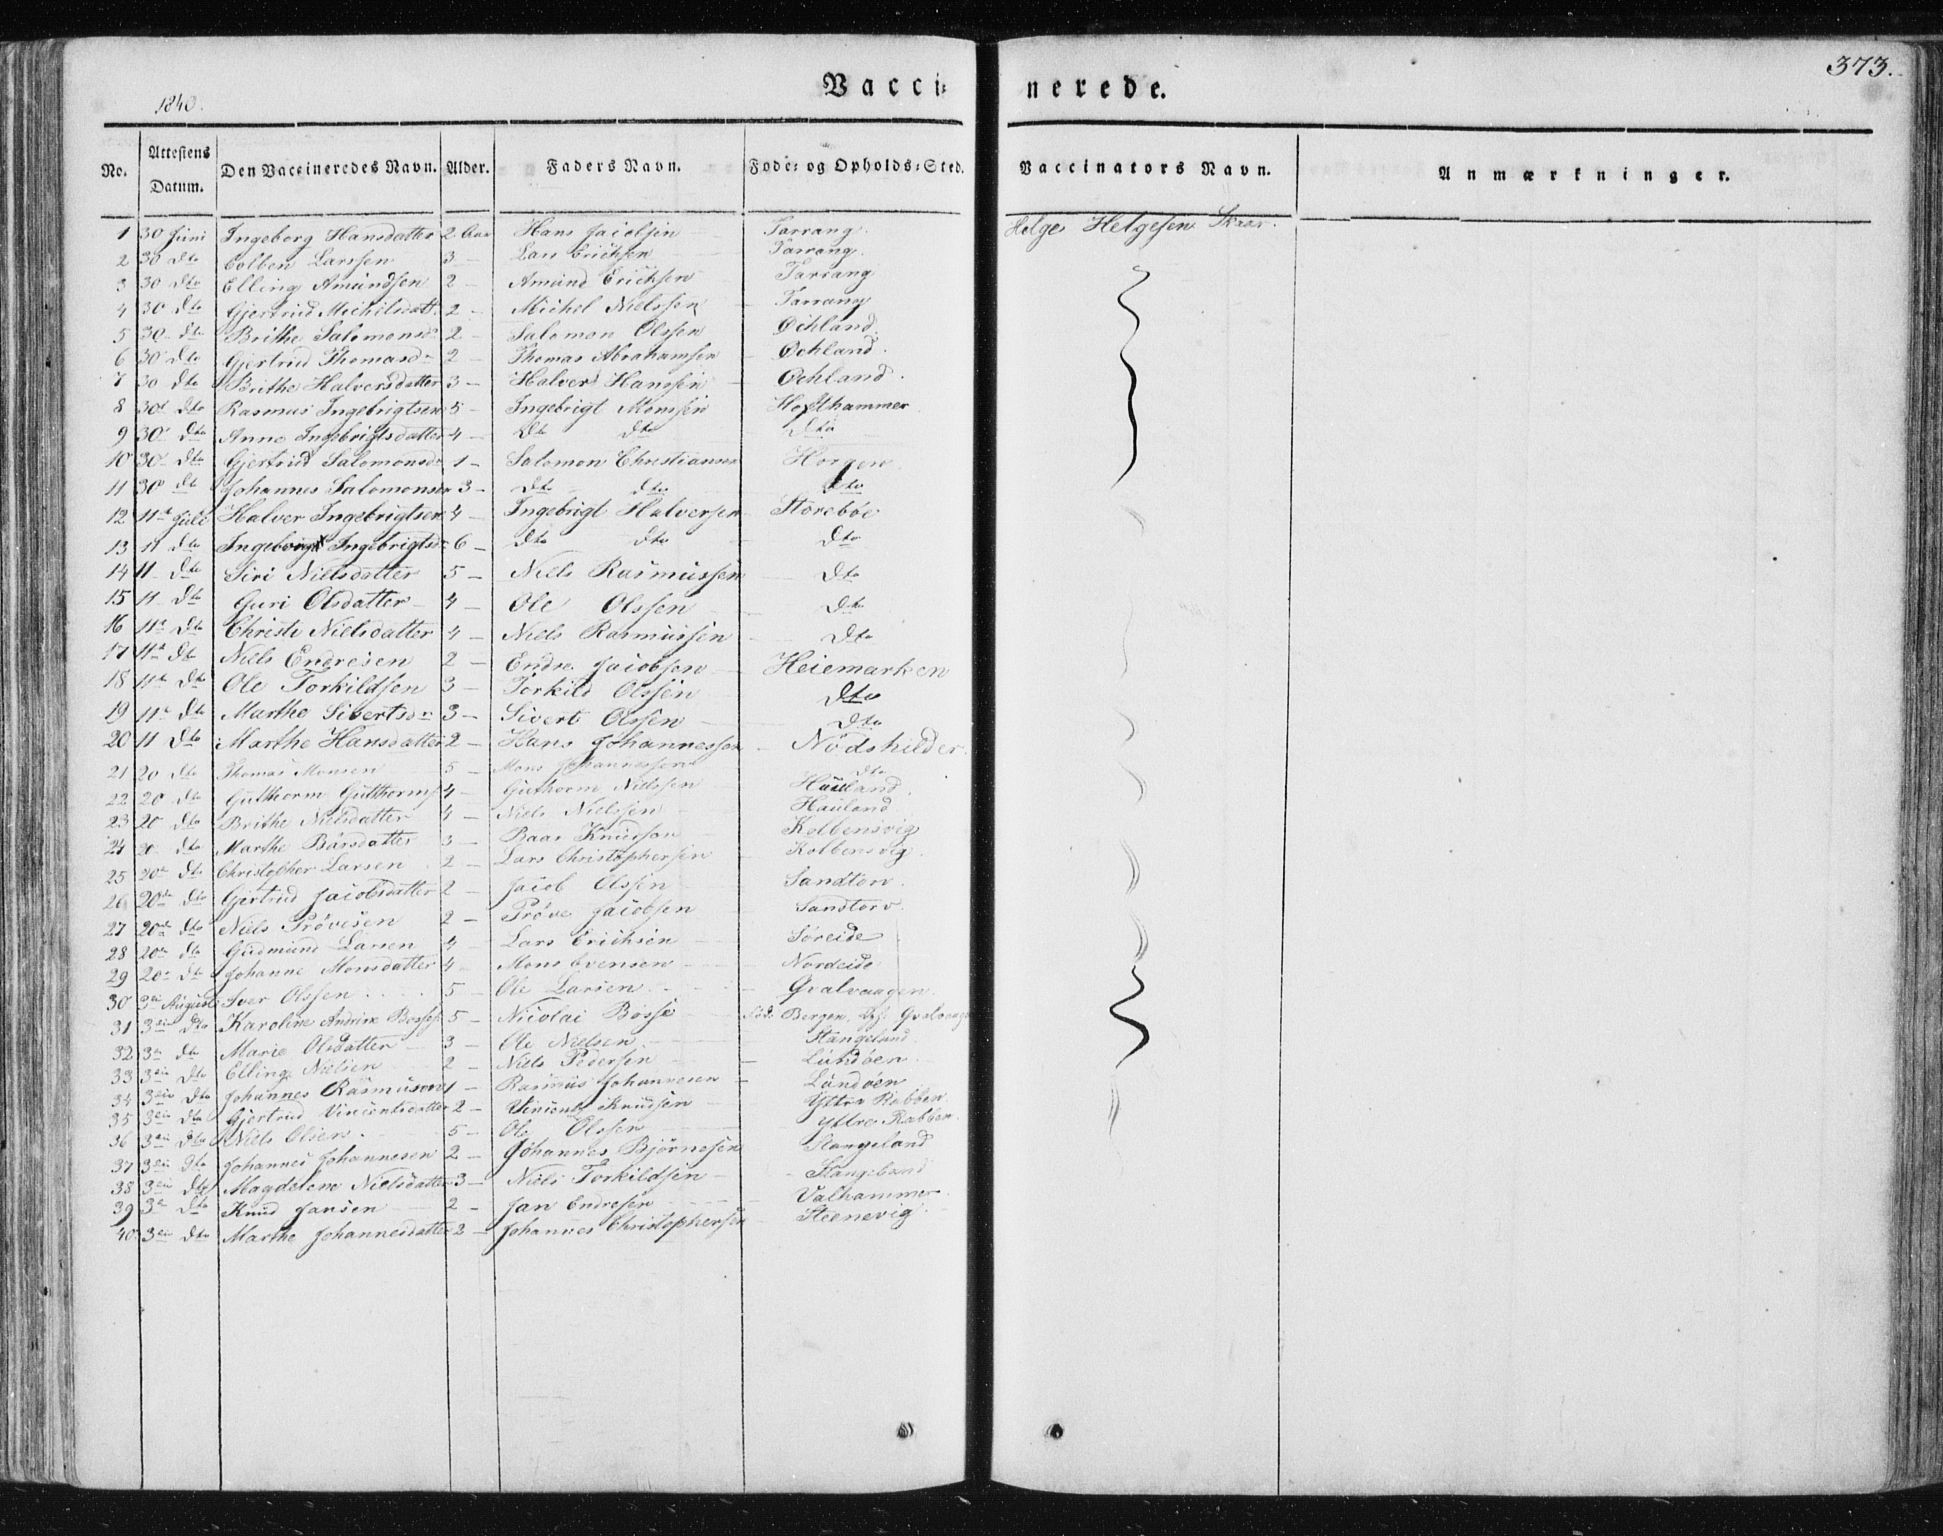 373.
1840.
Vacci- nerede.
No. Attestens Datum. Den Vaccineredes Navn. Alder. Faders Navn. Føde- og Opholds-Sted. Vaccinators Navn. Anmærkninger.
1 30 Juni Ingeborg Hansdatter 2 Aar Hans Jacobsen Tarrang. Helge Helgesen Skaar.
2 30 dto Colben Larssen 3 — Lars Erichsen Tarrang.
3 30 dto Elling Amundsen 2 — Amund Erichsen Tarrang
4 30 dto Gjertrud Michelsdatt. 2 — Michel Nielssen — Tarrang
5 30 dto Brithe Salomonsd 2 — Salomon Olssen Øchland.
6 30 dto Gjertrud Thomasd 2 — Thomas Abrahamsen — Øchland.
7 30 dto Brithe Halversdatter 3 — Halver Hanssen — Øchland.
8 30 dto Rasmus Ingebrigtsen 5 — Ingebrigt Monssen Hoflthammer
9 30 dto Anne Ingebrigtsdatter 4 — dto dto dto
10 30 dto Gjertrud Salomonsd 1 — Salomon Christiansen Horgen
11 30 dto Johannes Salomonsen 3 — dto dto dto
12 11te Juli Halver Ingebrigtsen 4 — Ingebrigt Halversen Storebøe
13 11 dto Ingeborg Ingebrigtsd 6 — dto dto dto
14 11 dto Siri Nielsdatter 5 — Niels Rasmussen — dto
15 11 dto Guri Olsdatter 4 — Ole Olssen — dto
16 11te dto Christi Nielsdatter 4 — Niels Rasmussen — dto
17 11te dto Niels Endresen 2 — Endre Jacobsen — Heiemarken
18 11te dto Ole Torkildsen 3 — Torkild Olssen dto
19 11te dto Marthe Sivertsd 3 — Sivert Olssen — dto
20 11 dto Marthe Hansdatter 2 — Hans Johannessen — Nodshilder
21 20 dto Thomas Monsen 5 — Mons Johannessen dto
22 20 dto Gutthorm Gutthorms 4 — Guthorm Nielssen Hauland.
23 20 dto Brithe Nielsdatter 4 — Niels Nielssen — Hauland
24 20 dto Marthe Bårsdatter 3 — Baar Knudsen — Kolbensvig
25 20de dto Christopher Larsen 2 — Lars Christophersen — Kolbensvig.
26 20de dto Gjertrud Jacobsdatter 2 — Jacob Olssen — Sandtorv.
27 20de dto Niels Prövesen 2 — Pröve Jacobsen — Sandtorv.
28 20de dto Gudmund Larsen 4 — Lars Erichsen — Søreide
29 20de dto Johanne Monsdatter 4 — Mons Evensen — Nordeide
30 3die August Iver Olssen 5 — Ole Larsen — Qvalvaagen.
31 3die dto Karoline Andrine Bosse 5 — Nicolai Bosse Fød. Bergen, Qvalvaag
32 3die dto Marie Olsdatter 3 — Ole Nielsen Stangeland
33 3die dto Elling Nielsen 2 — Niels Pedersen — Lundøen
34 3die dto Johannes Rasmusen 1 — Rasmus Johannesen — Lundøen
35 3die dto Gjertrud Vincentsdatter 2 — Vincent Knudsen — Yttre Rabben
36 3die dto Niels Olsen 5 — Ole Olssen Yttre Rabben.
37 3die dto Johannes Johannesen 2 — Johannes Bjørnesen Stangeland
38 3die dto Magdelene Nielsdatter 3 — Niels Torkildsen — Stangeland
39 3die dto Knud Jansen 2 — Jan Endresen — Valhammer
40 3die dto Marthe Johannesdatter 2 — Johannes Christophersen — Steenevig.